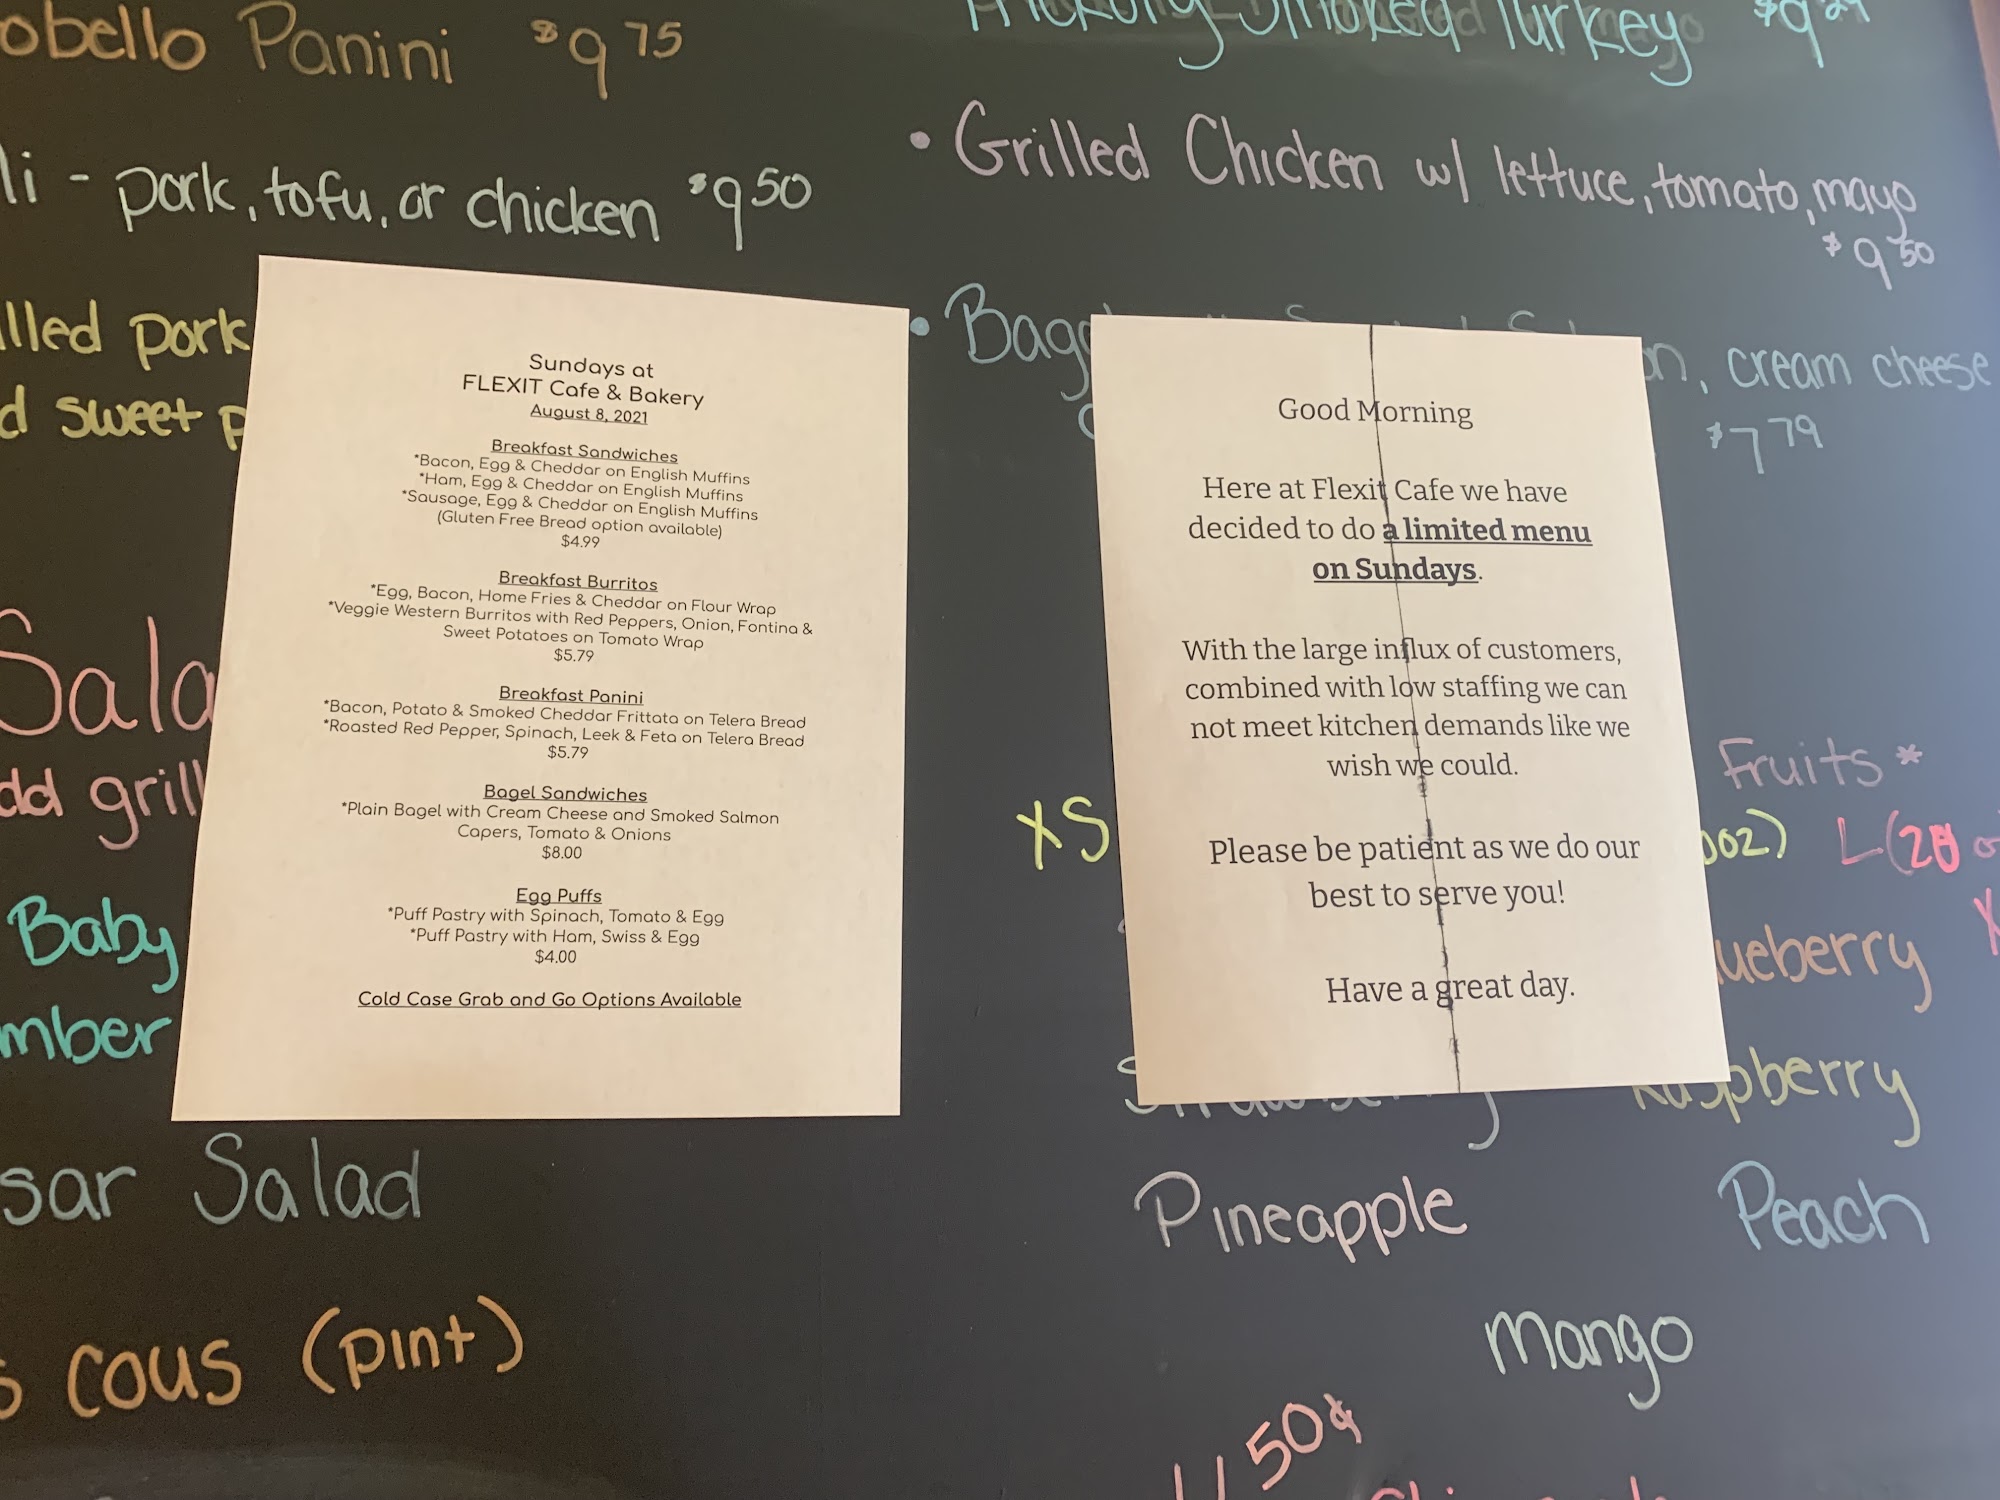 Panini $9 75
- pork, tofu, or chicken $9 50
pork
sweet
Smoked Turkey
• Grilled Chicken w/ lettuce, tomato, mayo
$9 50
cream cheese
$7 79
Sundays at
FLEXIT Cafe & Bakery
August 8, 2021
Breakfast Sandwiches
*Bacon, Egg & Cheddar on English Muffins
*Ham, Egg & Cheddar on English Muffins
*Sausage, Egg & Cheddar on English Muffins
(Gluten Free Bread option available)
$4.99
Breakfast Burritos
*Egg, Bacon, Home Fries & Cheddar on Flour Wrap
*Veggie Western Burritos with Red Peppers, Onion, Fontina &
Sweet Potatoes on Tomato Wrap
$5.79
Breakfast Panini
*Bacon, Potato & Smoked Cheddar Frittata on Telera Bread
*Roasted Red Pepper, Spinach, Leek & Feta on Telera Bread
$5.79
Bagel Sandwiches
*Plain Bagel with Cream Cheese and Smoked Salmon
Capers, Tomato & Onions
$8.00
Egg Puffs
*Puff Pastry with Spinach, Tomato & Egg
*Puff Pastry with Ham, Swiss & Egg
$4.00
Cold Case Grab and Go Options Available
Good Morning
Here at Flexit Cafe we have
decided to do a limited menu
on Sundays.
With the large influx of customers,
combined with low staffing we can
not meet kitchen demands like we
wish we could.
Please be patient as we do our
best to serve you!
Have a great day.
Baby
Salad
cous (pint)
Fruits *
XS
L (20
Raspberry
Pineapple
Peach
Mango
50¢